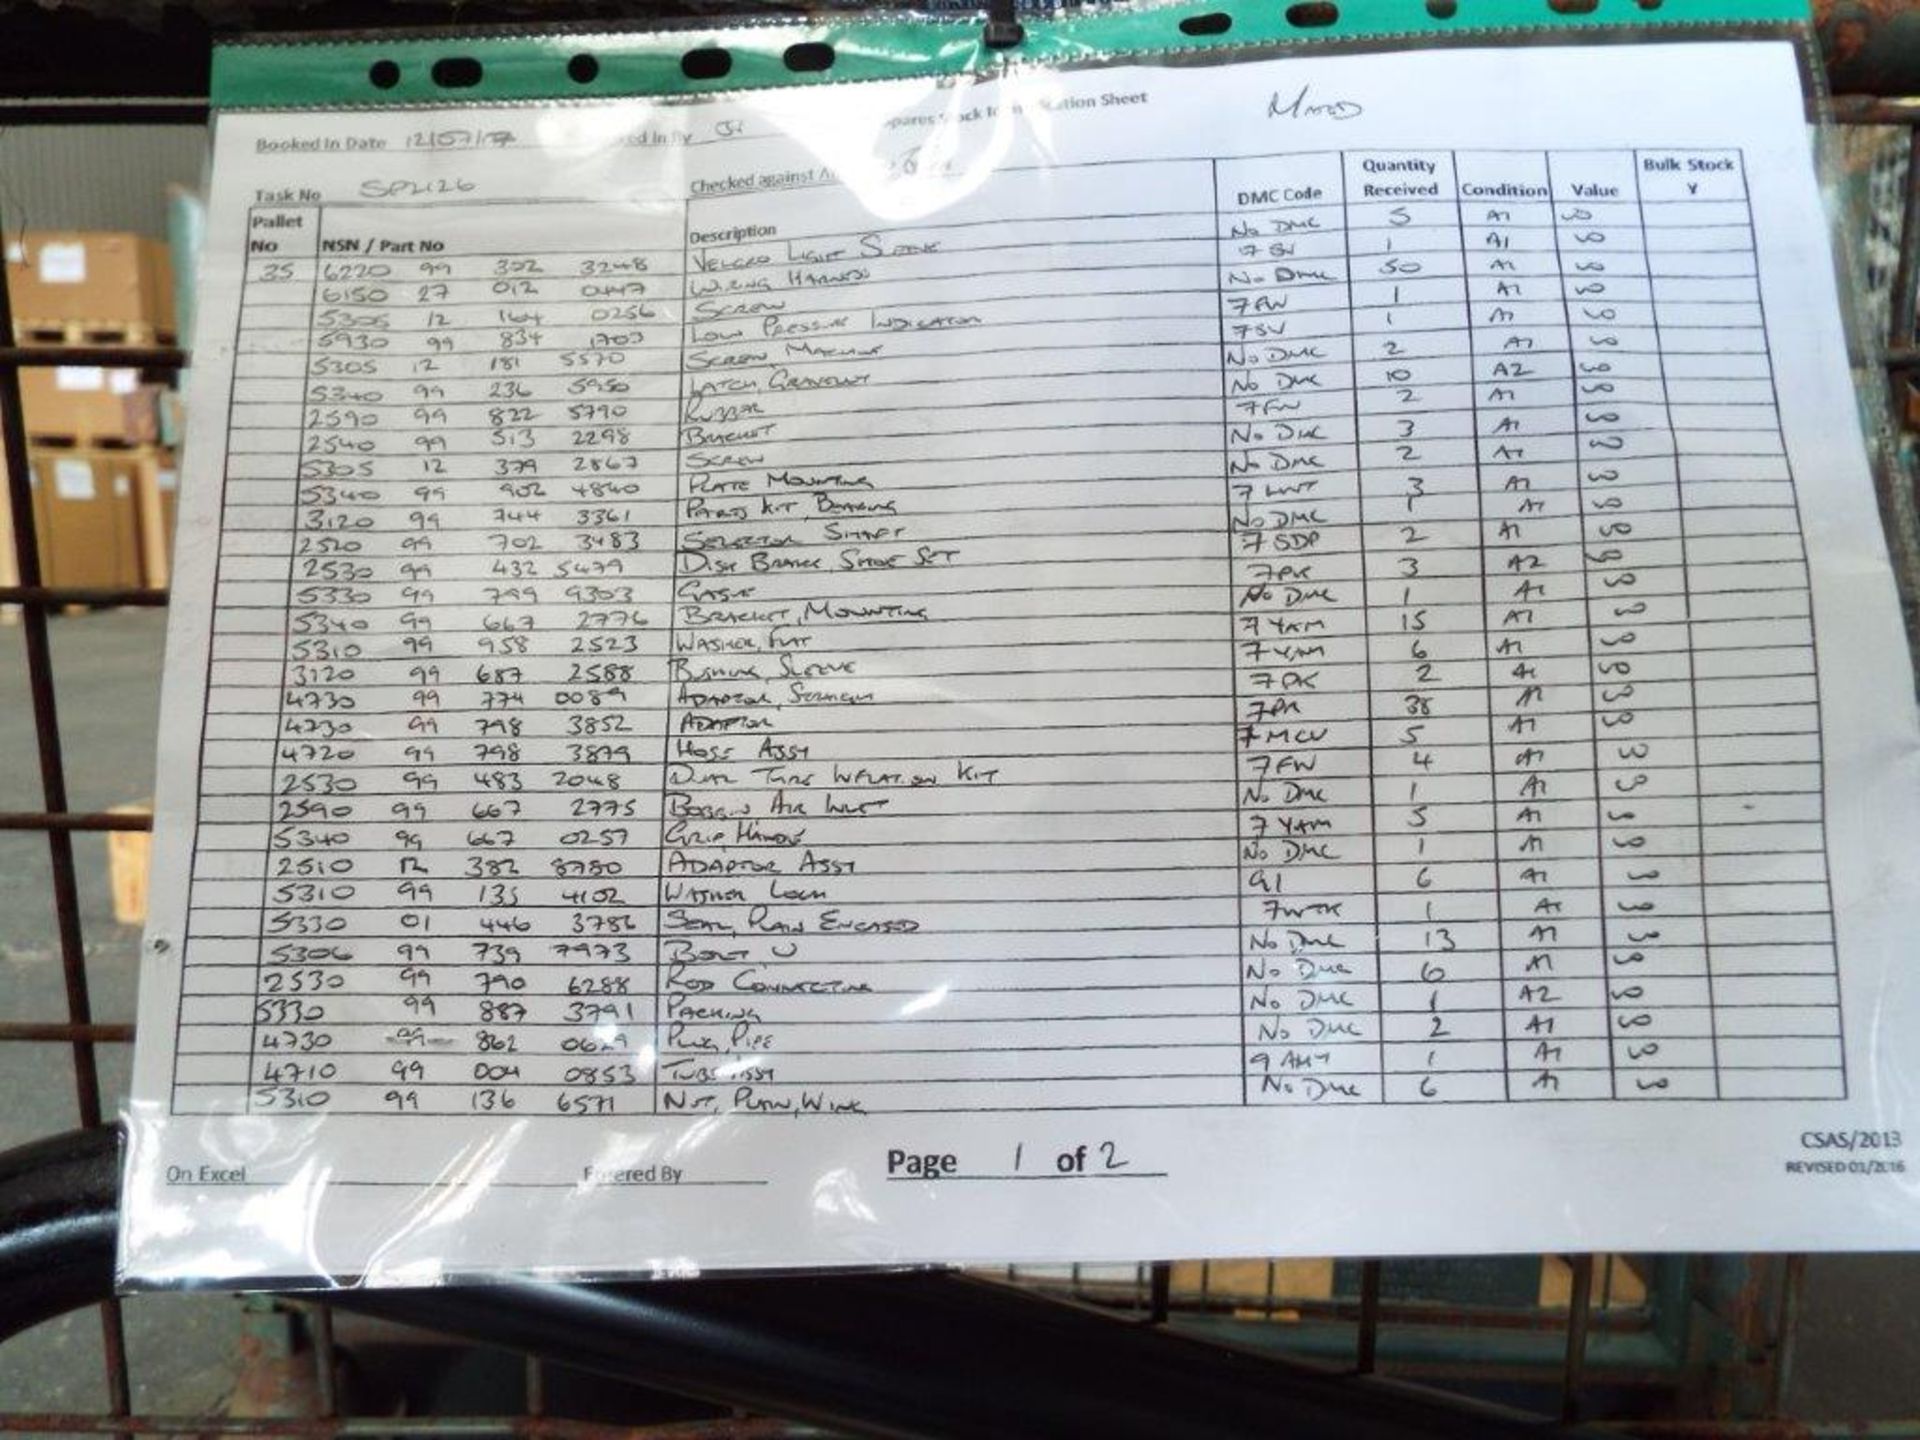 Stock Identification Sheet
Booked In Date 12/07/17 In By
Task No SP2126 Checked against
Pallet No NSN / Part No Description DMC Code Quantity Received Condition Value Bulk Stock Y
35 6220 99 302 3248 Velcro Light No DMC 5 A1
6150 27 012 0447 Wiring Harness 7 SV 1 A1
5305 12 164 0256 Screw No DMC 50 A1
5930 99 834 1703 Low Pressure Indicator 7FW 1 A1
5305 12 181 5570 Screw Machine 7SV 1 A1
5340 99 236 5950 Latch, No DMC 2 A1
2590 99 822 5790 Rubber No DMC 10 A2
2540 99 513 2298 Bracket 7FW 2 A1
5305 12 379 2867 Screw No DMC 3 A1
5340 99 902 4840 Plate Mounting No DMC 2 A1
3120 99 744 3361 Parts Kit, Bearing 7 LWT 3 A1
2520 99 702 3483 Selector Shaft No DMC 1 A1
2530 99 432 5479 Disk Brake Shoe Set 7 SDP 2 A1
5330 99 799 9303 7PK 3 A2
5340 99 667 2776 Bracket, Mounting No DMC 1 A1
5310 99 958 2523 Washer, Flat 7 YAM 15 A1
3120 99 687 2588 Bushing, Sleeve 7 YAM 6 A1
4730 99 774 0089 Adaptor, Straight 7PK 2 A1
4730 99 798 3852 Adaptor 7PK 38 A1
4720 99 798 3879 Hose Assy 7 MCV 5 A1
2530 99 483 2048 Dual Tyre Inflation Kit 7FW 4 A1
2590 99 667 2775 Air Inlet No DMC 1 A1
5340 99 667 0257 Grip, Handle 7 YAM 5 A1
2510 12 382 8780 Adaptor Assy No DMC 1 A1
5310 99 135 4102 Washer Lock 91 6 A1
5330 01 446 3786 Seal, Plain Encased 7WTK 1 A1
5306 99 739 7973 Bolt U No DMC 13 A1
2530 99 790 6288 Rod Connecting No DMC 6 A1
5330 99 887 3791 Packing No DMC 1 A2
4730 99 862 Plug, Pipe No DMC 2 A1
4710 99 004 0853 Tube Assy 9 AMT 1 A1
5310 99 136 6571 Nut, Plain, Wing No DMC 6 A1
On Excel Entered By Page 1 of 2
CSAS/2013
REVISED 01/2016